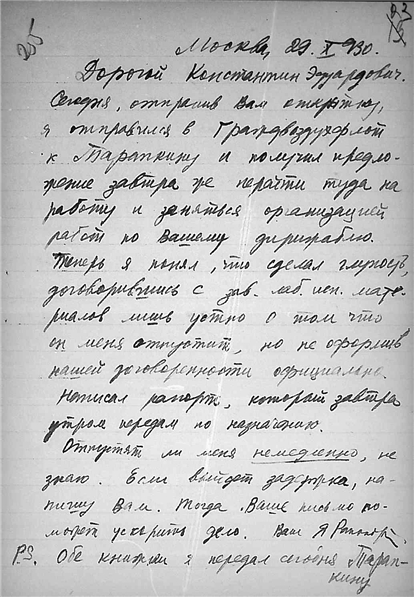 Москва, 29.X 930.
Дорогой Константин Эдуардович.
Сегодня, отправив Вам открытку,
я отправился в Гражвоздухфлот
к Тарапкину и получил предло-
жение завтра же перейти туда на
работу и заняться организацией
работ по Вашему дирижаблю.
Теперь я понял, что сделал глупость
договорившись с зав. лаб. исп. мате-
риалов лишь устно о том что
он меня отпустит, но не оформив
нашей договоренности официально.
Написал рапорт, который завтра
утром передам по назначению.
Отпустят ли меня немедленно, не
знаю. Если выйдет задержка, на-
пишу Вам. Тогда Ваше письмо по-
может ускорить дело. Ваш Я Рапопорт.
P.S. Обе книжки я передал сегодня Тарап-
кину